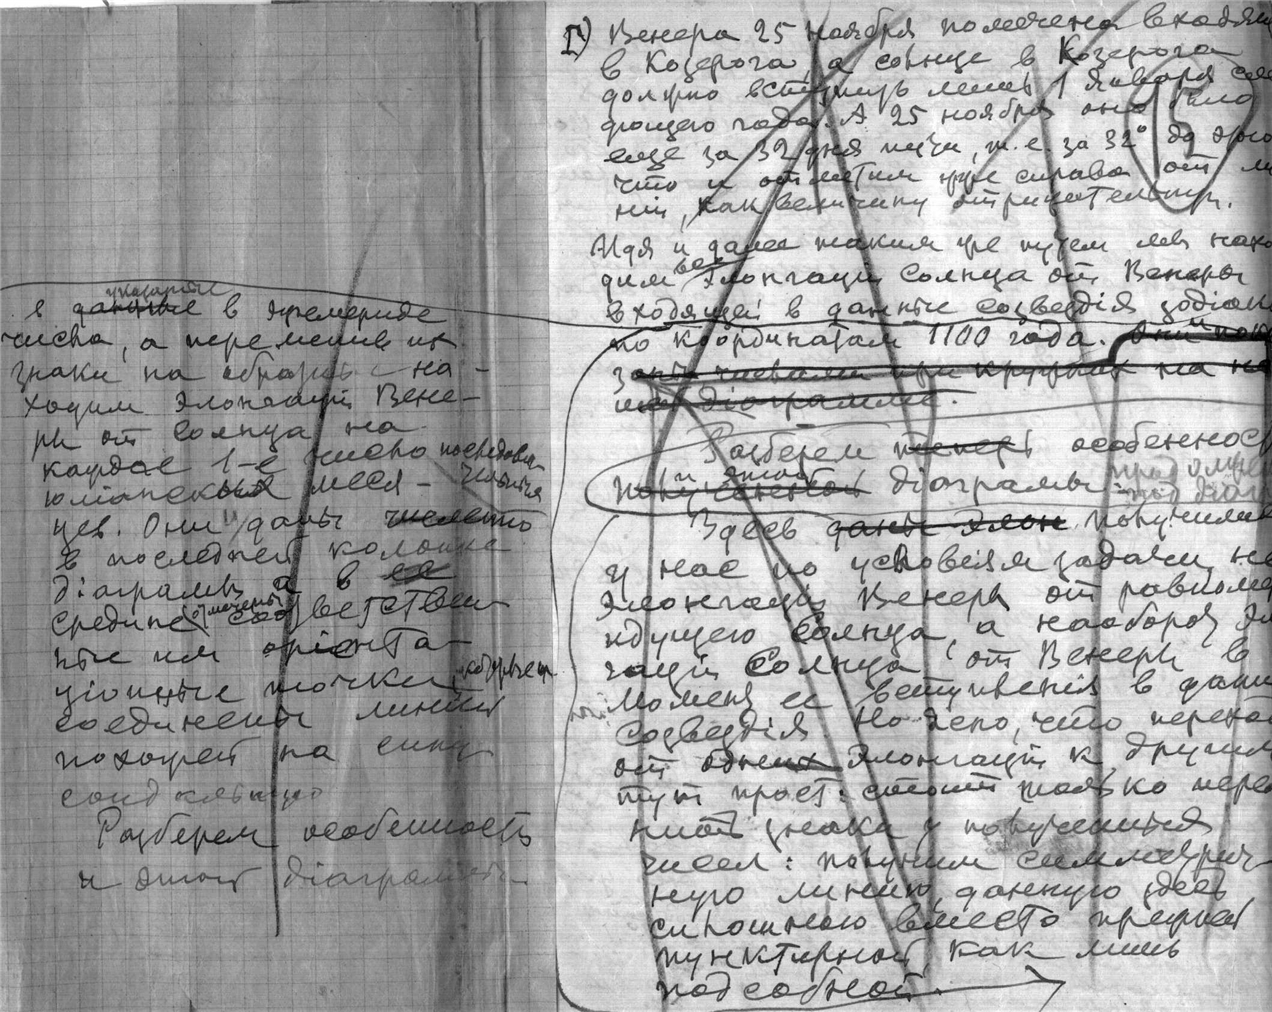 в указанные данные в эфемериде
числа, а переменив их
знаки на обратные на-
ходим Элонгаціи Вене-
ры от Солнца на
каждое 1-е число последова-
юліанских меся- тельных
цев. Они и даны числами
в последней колонке
діаграммы а в ее
средине отмечены соответствен-
ные им оріента-
ціонные точки которые
соединены линией
похожей на сину-
соидальную
Разберем особенность
и этой діаграммы
Г) Венера 25 ноября помечена входящ
в Козерога, а солнце в Козерога
должно вступить лишь 1 Января сле
дующего года. А 25 ноября оно было
еще за 32 дня пути, т.е. за 32° до этого
что и отметим уже справа от ли
ніи, как величину отрицательную.
Идя и далее таким же путем мы нахо
дим все Элонгаціи Солнца от Венеры
входящей в данные созвездія зодіака
по координатам 1100 года. Они и пока
заны числами при кружках на на
шей діаграмме.
Разберем теперь особенност
полученной и этой діаграммы
Здесь даны элон получились
у нас по условіям задачи не
Элонгаціи Венеры от равноме
идущего Солнца, а наоборот Эл
гаціи Солнца от Венеры в
момент ее вступленія в данн
созвездія Но ясно, что переход
от одних Элонгацій к другим
тут прост: стоит только пере
нить знаки у полученных
чисел: получим симметрич-
ную линію, данную здесь
сплошною вместо прежней
пунктирной как лишь
подсобной
15